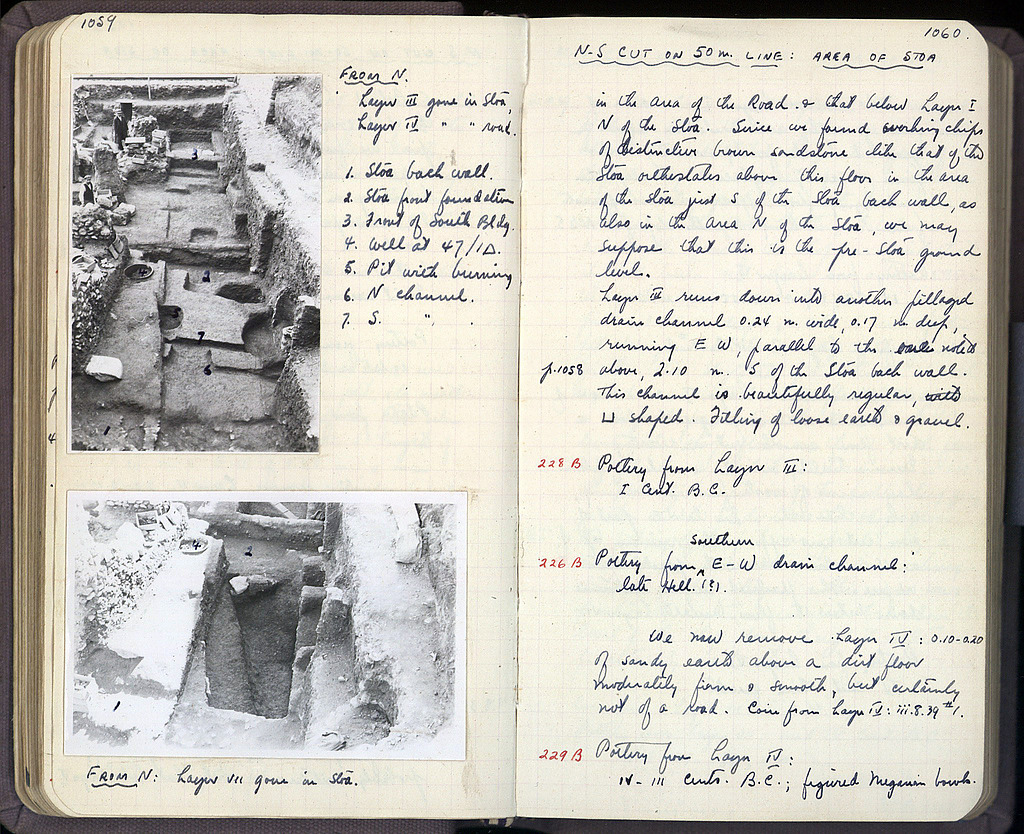 1059
FROM N.
Layer III gone in Stoa,
Layer IV " " road.
1. Stoa back wall.
2. Stoa front foundation
3. Front of South Bldg.
4. Well at 47/ΙΔ.
5. Pit with burning
6. N channel.
7. S. " .
FROM N: Layer VII gone in Stoa.
1060.
N-S CUT ON 50 m. LINE: AREA OF STOA
in the area of the Road & that below Layer I
N of the Stoa. Since we found working chips
of distinctive brown sandstone like that of the
Stoa orthostates above this floor in the area
of the Stoa just S of the Stoa back wall, as
also in the area N of the Stoa, we may
suppose that this is the pre-Stoa ground
level.
Layer III runs down into another pillaged
drain channel 0.24 m. wide, 0.17 m deep,
running E W, parallel to the noted
p.1058 above, 2.10 m. S of the Stoa back wall.
This channel is beautifully regular,
⊔ shaped. Filling of loose earth & gravel.
228 B Pottery from Layer III:
I Cent. B.C.
Southern
226 B Pottery from ^ E-W drain channel:
late Hell. (?).
We now remove Layer IV: 0.10-0.20
of sandy earth above a dirt floor
moderately firm & smooth, but certainly
not of a road. Coin from Layer IV: iii.8.39 #1.
229 B Pottery from Layer IV:
IV - III cents. B.C.; figured Megarian bowls.